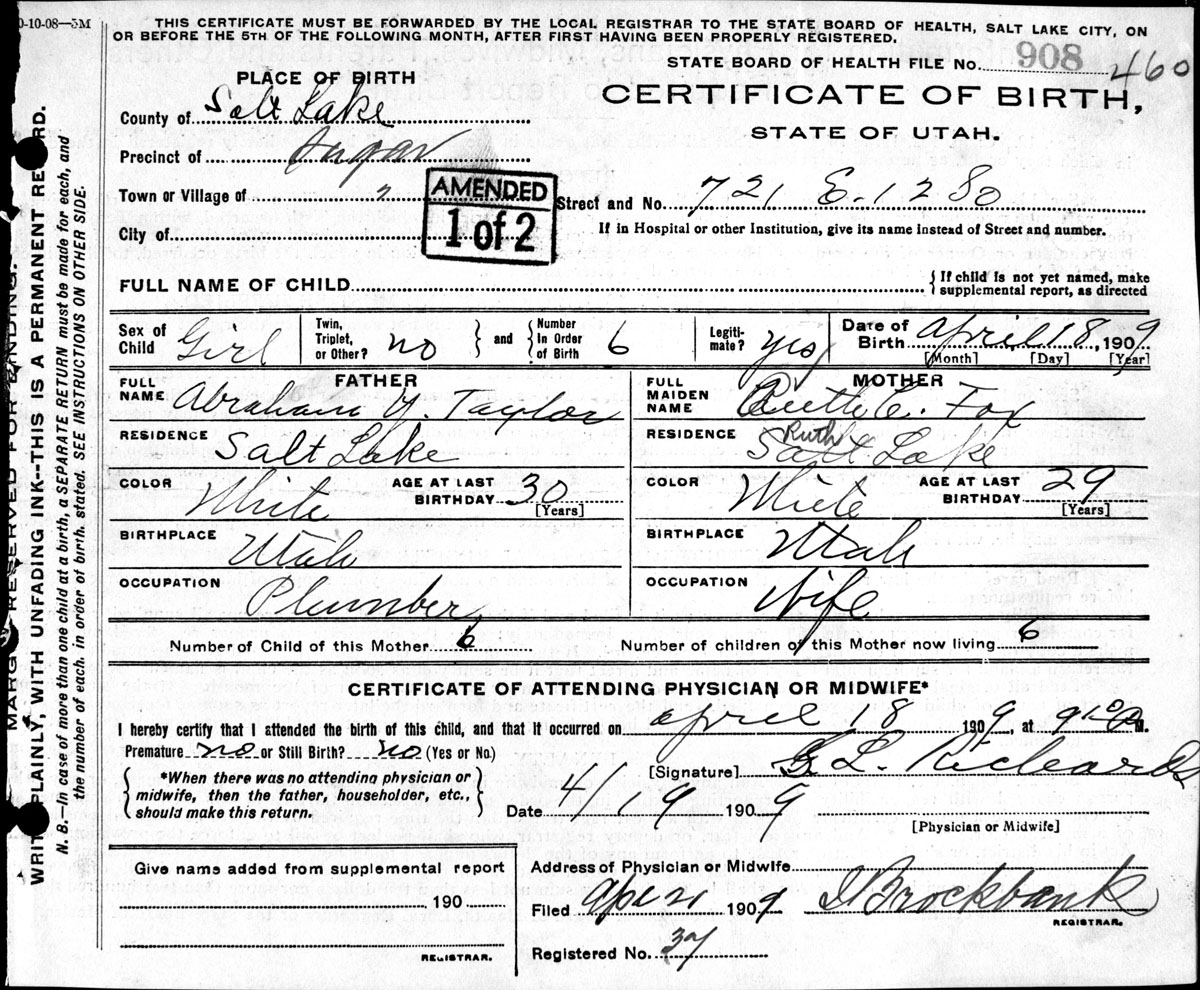 0-10-08—3M
THIS CERTIFICATE MUST BE FORWARDED BY THE LOCAL REGISTRAR TO THE STATE BOARD OF HEALTH, SALT LAKE CITY, ON
OR BEFORE THE 5TH OF THE FOLLOWING MONTH, AFTER FIRST HAVING BEEN PROPERLY REGISTERED.
STATE BOARD OF HEALTH FILE No. 908 460
PLACE OF BIRTH
CERTIFICATE OF BIRTH,
STATE OF UTAH.
County of Salt Lake
Precinct of Sugar
Town or Village of 2
AMENDED
1 of 2
Street and No. 721 E. 12 So
City of
If in Hospital or other Institution, give its name instead of Street and number.
FULL NAME OF CHILD
{If child is not yet named, make
supplemental report, as directed
Sex of Child Girl
Twin, Triplet, or Other? no } and { Number In Order of Birth 6
Legitimate? yes
Date of Birth April 18, 1909
[Month] [Day] [Year]
FATHER
FULL NAME Abraham Y. Taylor
RESIDENCE Salt Lake
COLOR White
AGE AT LAST BIRTHDAY 30
[Years]
BIRTHPLACE Utah
OCCUPATION Plumber
MOTHER
FULL MAIDEN NAME Ruth C. Fox
Ruth
RESIDENCE Salt Lake
COLOR White
AGE AT LAST BIRTHDAY 29
[Years]
BIRTHPLACE Utah
OCCUPATION Wife
Number of Child of this Mother 6
Number of children of this Mother now living 6
CERTIFICATE OF ATTENDING PHYSICIAN OR MIDWIFE*
I hereby certify that I attended the birth of this child, and that it occurred on April 18 1909, at 9:00 M.
Premature no or Still Birth? no (Yes or No.)
{*When there was no attending physician or
midwife, then the father, householder, etc.,
should make this return.}
[Signature] G. L. Richards
Date 4/19 1909
[Physician or Midwife]
Give name added from supplemental report
190
REGISTRAR.
Address of Physician or Midwife
Filed 1909 Brockbank
REGISTRAR.
Registered No. 37
MARGIN RESERVED FOR BINDING.
WRITE PLAINLY, WITH UNFADING INK--THIS IS A PERMANENT RECORD.
N. B.—In case of more than one child at a birth, a SEPARATE RETURN must be made for each, and
the number of each, in order of birth, stated. SEE INSTRUCTIONS ON OTHER SIDE.